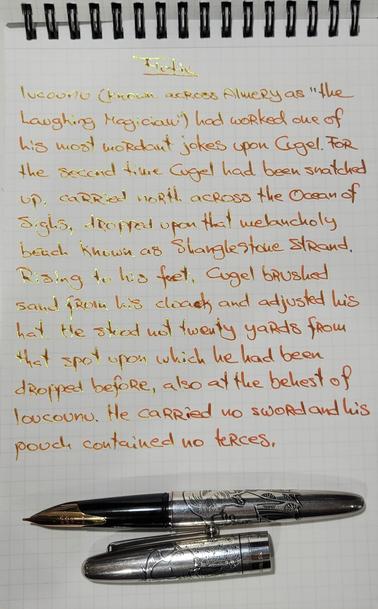 Iucounu (known across Almery as "the
Laughing Magician") had worked one of
his most mordant jokes upon Cugel. For
the second time Cugel had been snatched
up, carried north across the Ocean of
Sighs, dropped upon that melancholy
beach known as Shanglestone Strand.
Rising to his feet, Cugel brushed
sand from his cloack and adjusted his
hat. He stood not twenty yards from
that spot upon which he had been
dropped before, also at the behest of
Ioucounu. He carried no sword and his
pouch contained no terces.